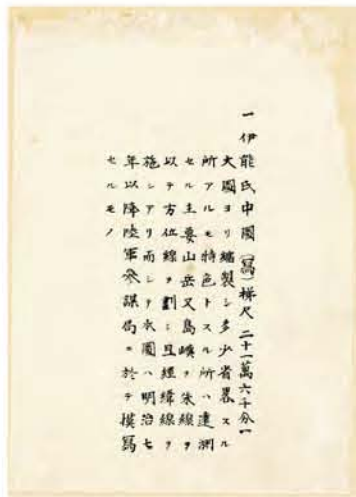 一伊能氏中圖(寫)梯尺二十一萬六千分一
大圖ヨリ編製シ多少省畧スル
所アルモ特色トスル所ハ遠測
セル主要山岳又島嶼ヲ朱線ヲ
以テ方位線ヲ劃シ且経緯線ヲ
施シアリ而シテ本圖ハ明治七
年以降陸軍參謀局ニ於テ模寫
セルモノ